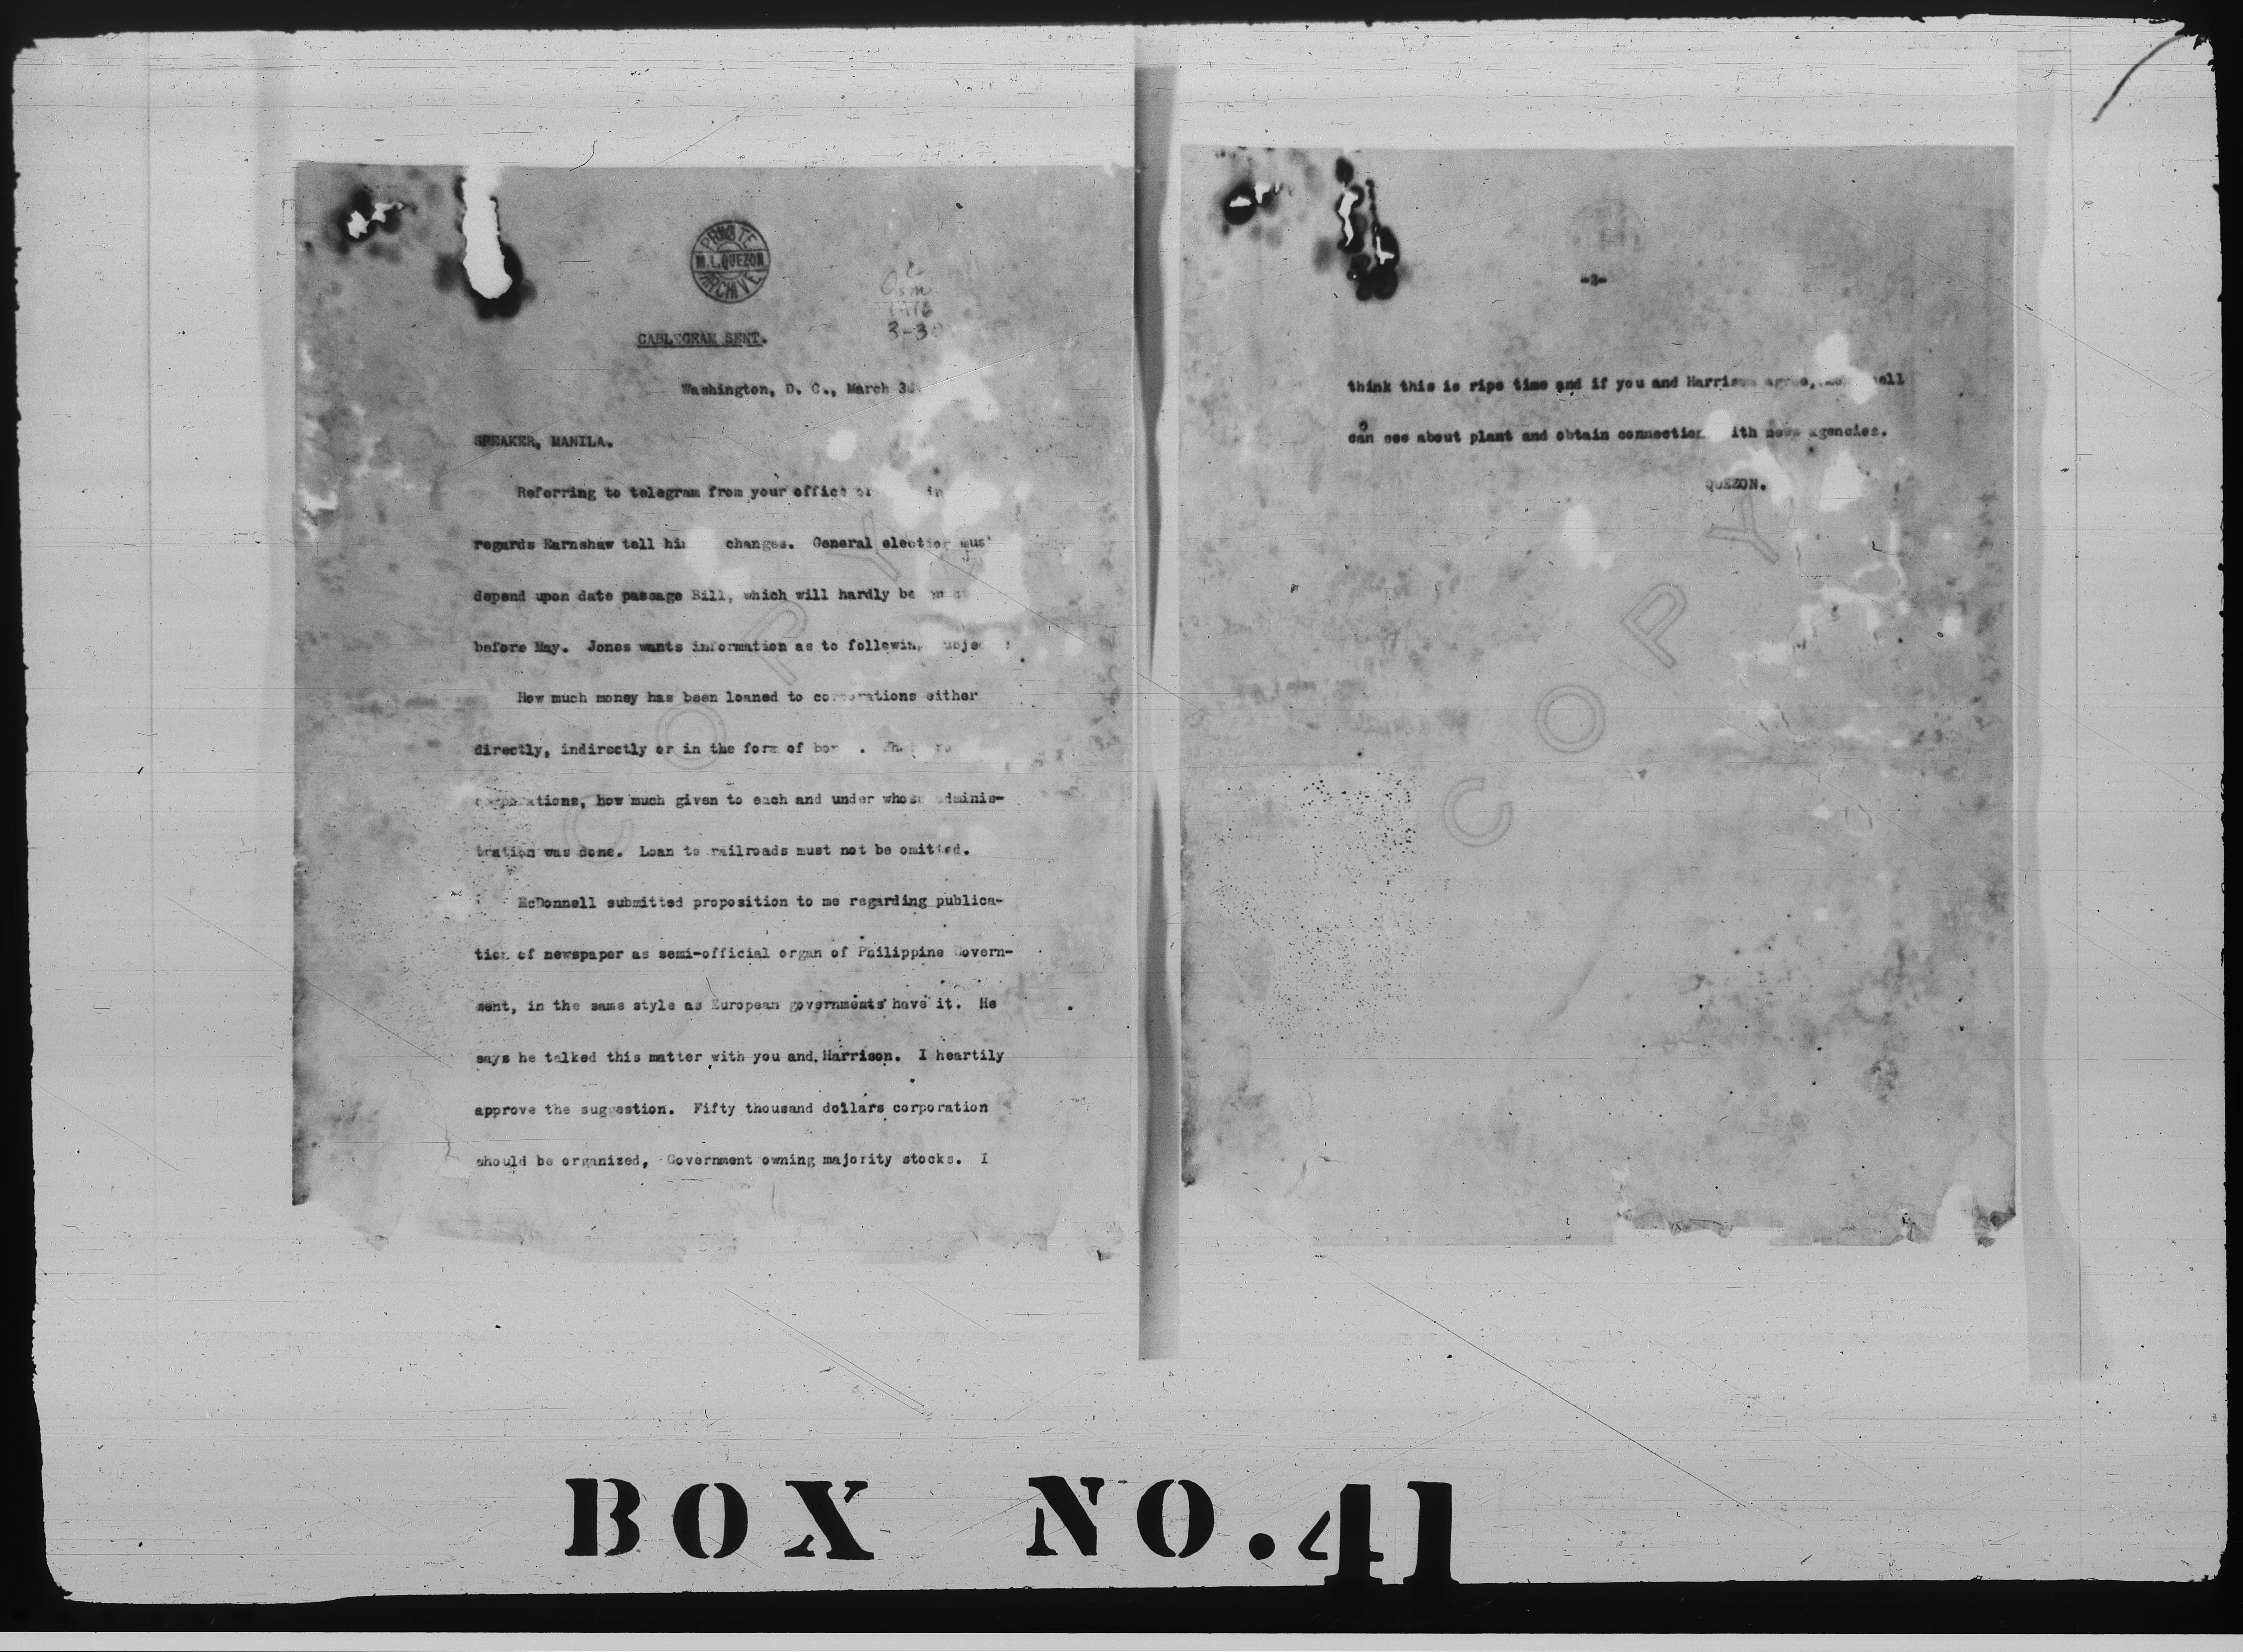 PRIVATE
M. L. QUEZON
ARCHIVE
1916
3-30
CABLEGRAM SENT.
Washington, D. C., March 30
SPEAKER, MANILA.
Referring to telegram from your office in
regards Earnshaw tell him changes. General election must
depend upon date passage Bill, which will hardly be
before May. Jones wants information as to following
How much money has been loaned to corporations either
directly, indirectly or in the form of
corporations, how much given to each and under whose adminis-
tration was done. Loan to railroads must not be omitted.
McDonnell submitted proposition to me regarding publica-
tion of newspaper as semi-official organ of Philippine Govern-
ment, in the same style as European governments have it. He
says he talked this matter with you and Harrison. I heartily
approve the suggestion. Fifty thousand dollars corporation
should be organized, Government owning majority stocks. I
COPY
-2-
think this is ripe time and if you and Harrison agree,
can see about plant and obtain connection with news agencies.
QUEZON.
COPY
BOX NO. 41